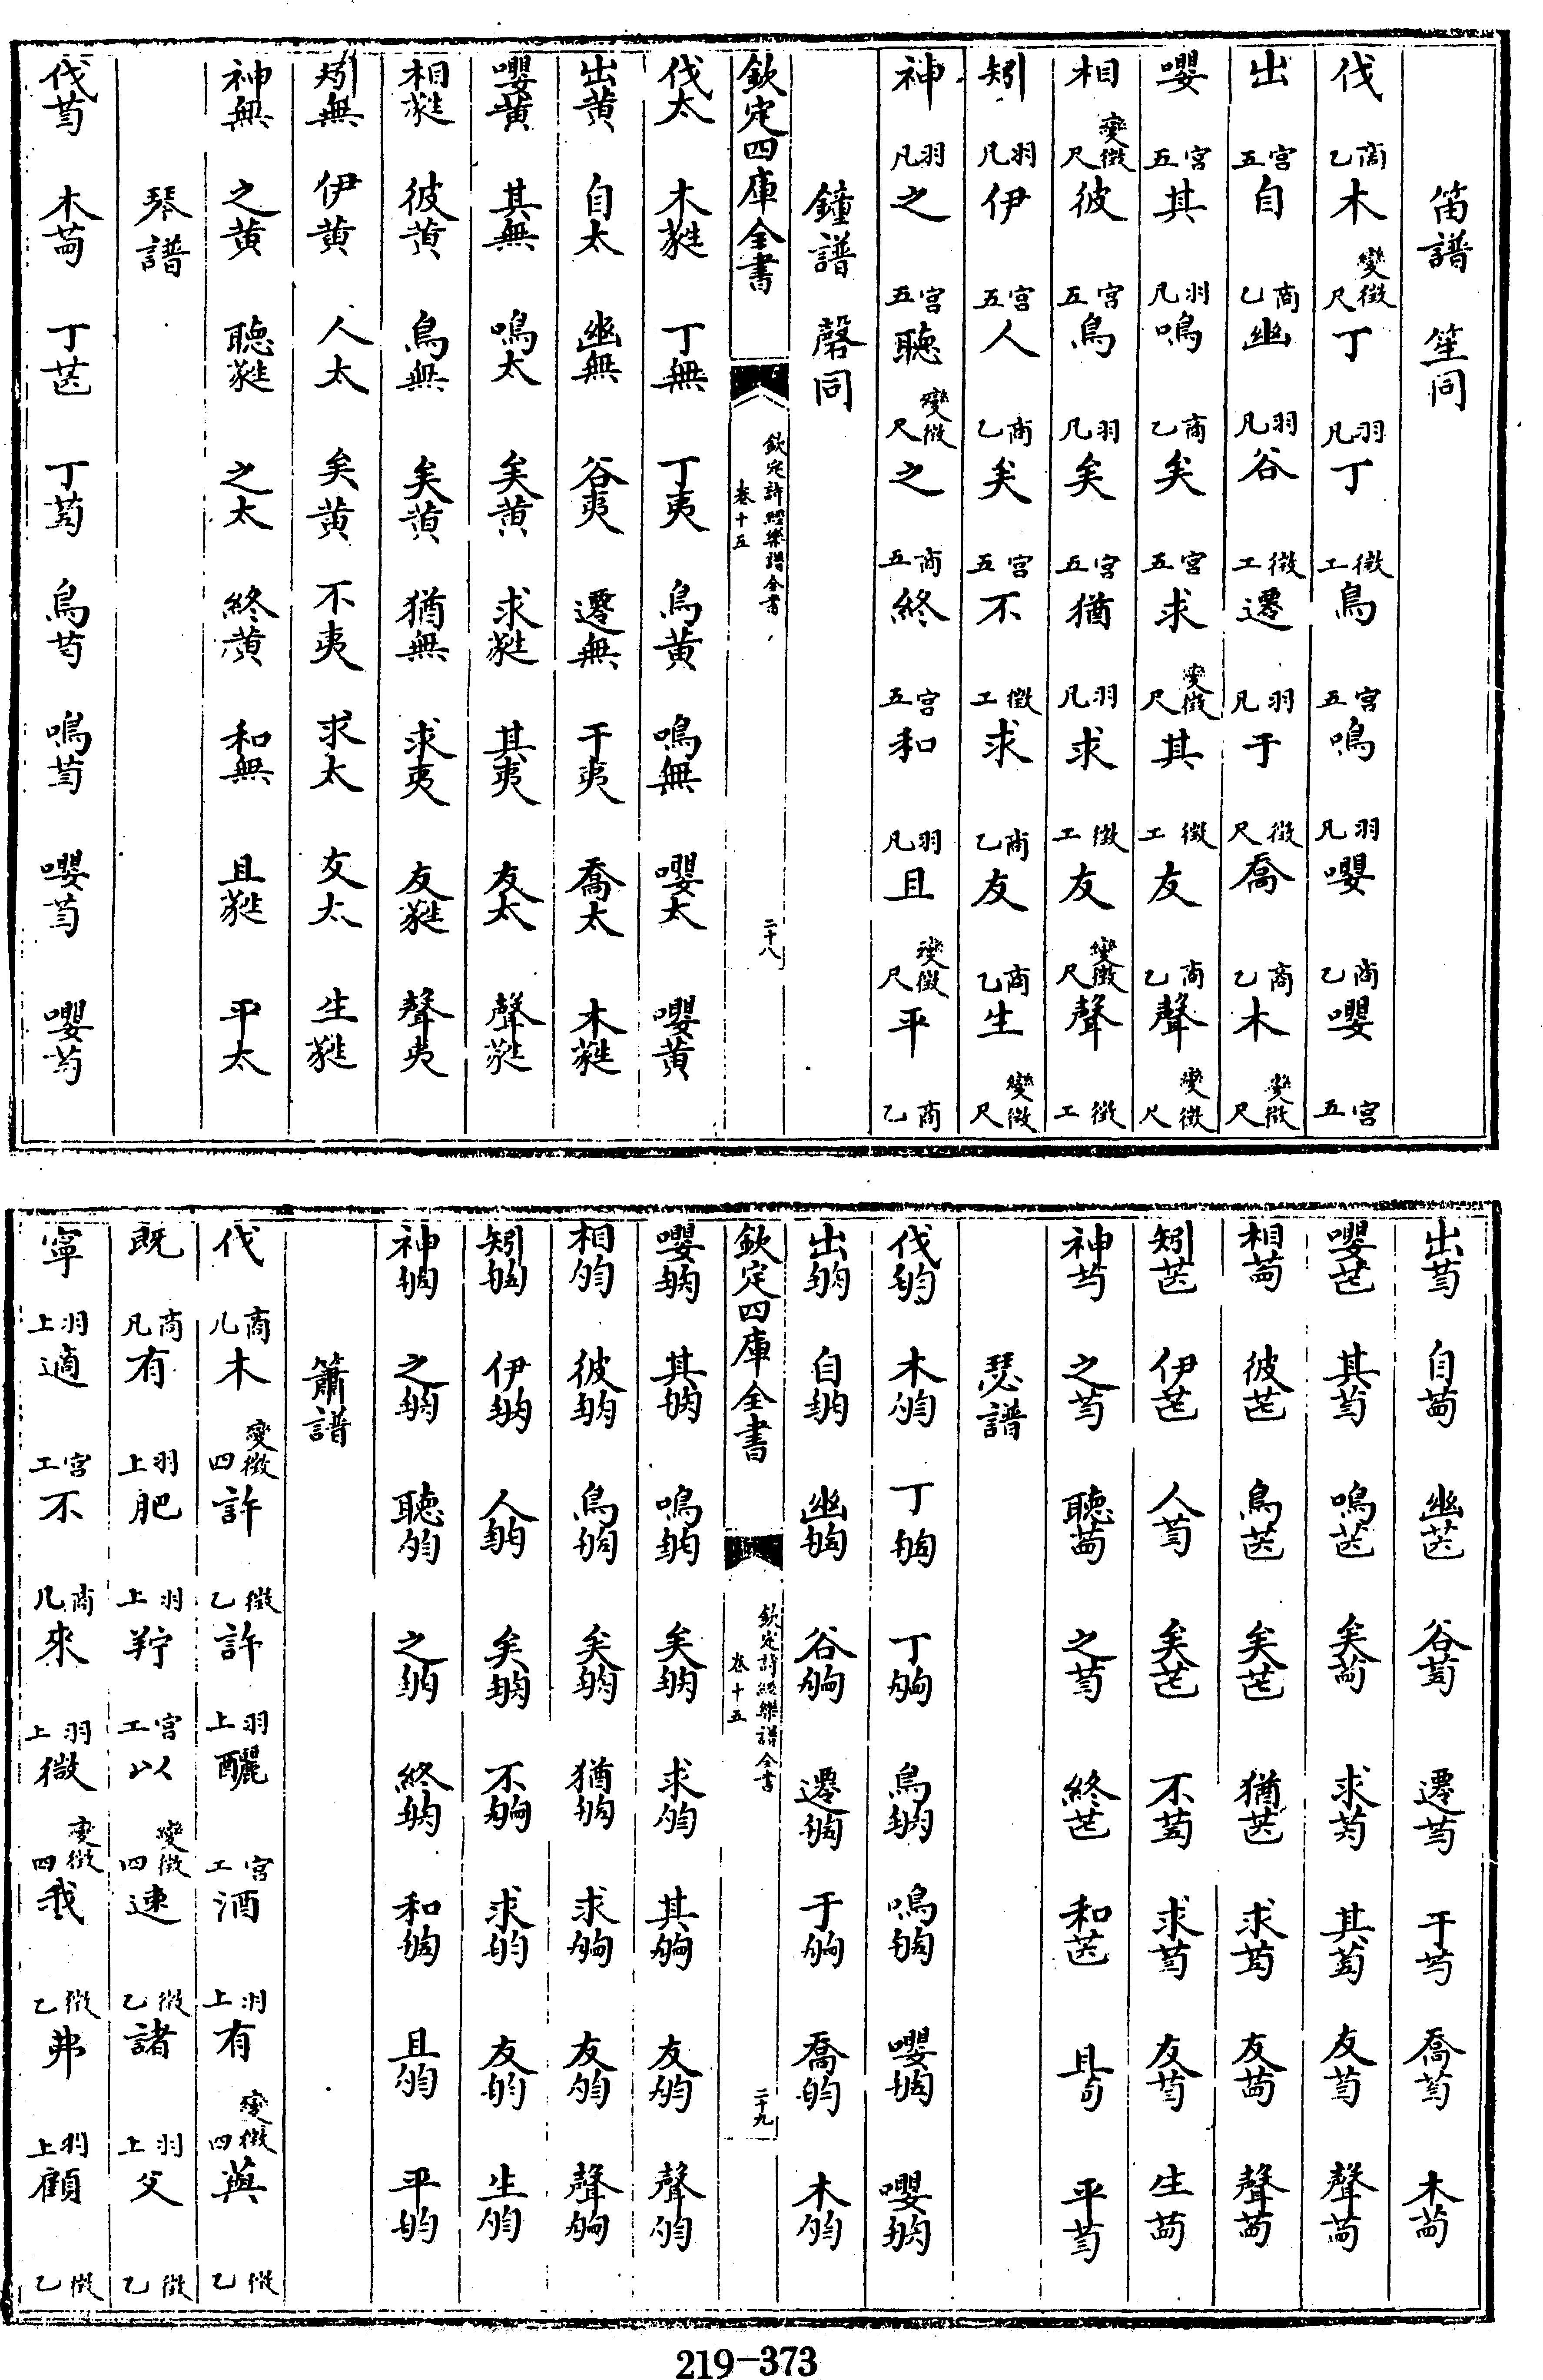 笛譜 笙同
伐商乙木變徵尺丁羽凡丁徵工鳥宮五鳴羽凡嚶商乙嚶宮五
出宮五自商乙幽羽凡谷徵工遷羽凡于徵尺喬商乙木變徵尺
嚶宮五其羽凡鳴商乙矣宮五求變徵尺其徵工友商乙聲變徵尺
相變徵尺彼宮五鳥羽凡矣宮五猶羽凡求徵工友變徵尺聲徵工
矧羽凡伊宮五人商乙矣宮五不徵工求商乙友商乙生變徵尺
神羽凡之宮五聽變徵尺之商五終宮五和羽凡且變徵尺平商乙
鐘譜 磬同
欽定四庫全書
欽定詩經樂譜全書
卷十五
二十八
伐太 木蕤 丁無 丁夷 鳥黄 鳴無 嚶太 嚶黄
出黄 自太 幽無 谷夷 遷無 于夷 喬太 木蕤
嚶黄 其無 鳴太 矣黄 求蕤 其夷 友太 聲蕤
相蕤 彼黄 鳥無 矣黄 猶無 求夷 友蕤 聲夷
矧無 伊黄 人太 矣黄 不夷 求太 友太 生蕤
神無 之黄 聽蕤 之太 終黄 和無 且蕤 平太
琴譜
伐 木 丁 丁 鳥 鳴 嚶 嚶
出 自 幽 谷 遷 于 喬 木
嚶 其 鳴 矣 求 其 友 聲
相 彼 鳥 矣 猶 求 友 聲
矧 伊 人 矣 不 求 友 生
神 之 聽 之 終 和 且 平
瑟譜
伐 木 丁 丁 鳥 鳴 嚶 嚶
出 自 幽 谷 遷 于 喬 木
欽定四庫全書
欽定詩經樂譜全書
卷十五
二十九
嚶 其 鳴 矣 求 其 友 聲
相 彼 鳥 矣 猶 求 友 聲
矧 伊 人 矣 不 求 友 生
神 之 聽 之 終 和 且 平
簫譜
伐商凡木變徵四許徵乙許羽上釃宮工酒羽上有變徵四藇徵乙
既商凡有羽上肥羽上羜宮工以變徵四速徵乙諸羽上父徵乙
寧羽上適宮工不商凡來羽上微變徵四我徵乙弗羽上顧徵乙
219-373